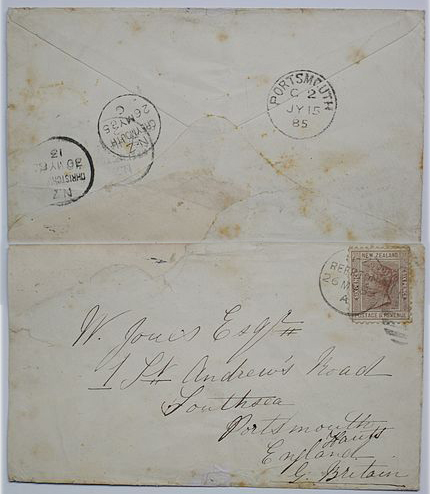 PORTSMOUTH
C 2
JY 15
85
GREYMOUTH
26 MY 85
C
N.Z
CHRISTCHURCH
30 MY 85
13
N.Z
REEFTON
26 M
A
NEW ZEALAND
POSTAGE & REVENUE
W. Jones Esqre
1 St Andrew's Road
Southsea
Portsmouth
Hants
England
G. Britain